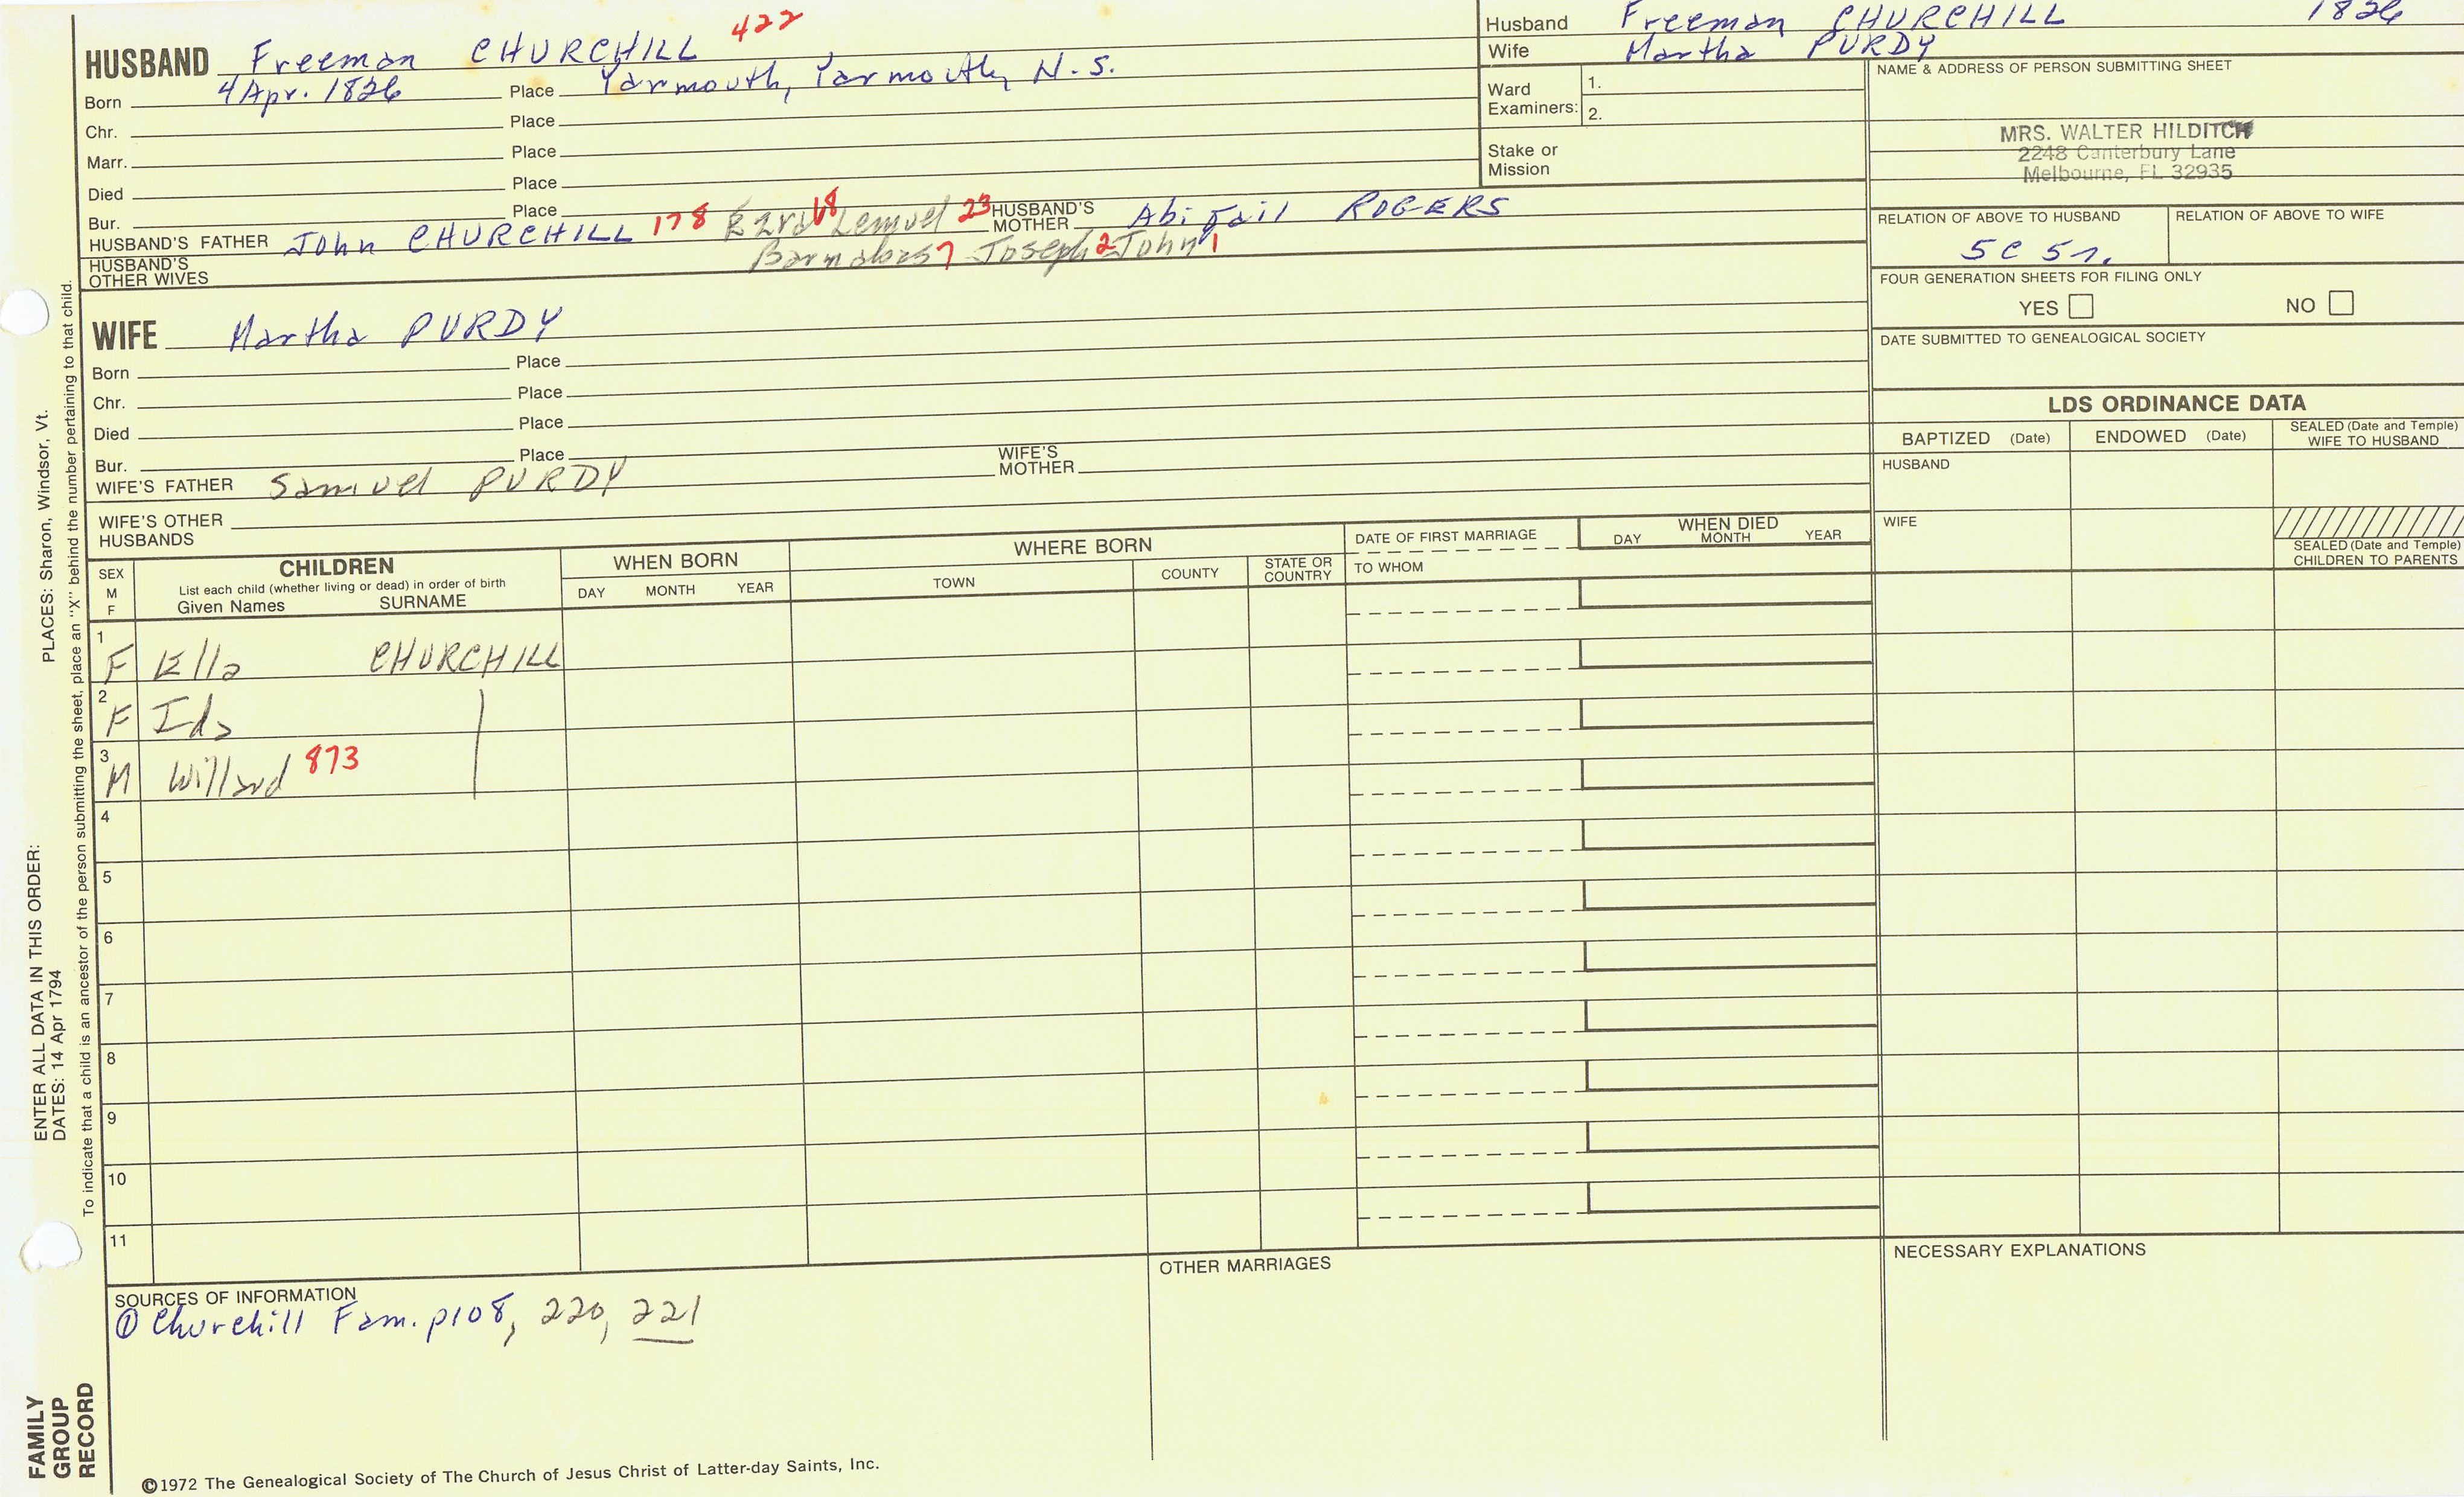 HUSBAND Freeman CHURCHILL 422
Born 4 Apr. 1826 Place Yarmouth, Yarmouth, N.S.
Chr. Place
Marr. Place
Died Place
Bur. Place
HUSBAND'S FATHER John CHURCHILL 178 Ezra 68 Lemuel 23 HUSBAND'S MOTHER Abigail ROGERS
Barnabas 7 Joseph 2 John 1
HUSBAND'S OTHER WIVES
WIFE Martha PURDY
Born Place
Chr. Place
Died Place
Bur. Place
WIFE'S FATHER Samuel PURDY WIFE'S MOTHER
WIFE'S OTHER HUSBANDS
Husband Freeman CHURCHILL 1826
Wife Martha PURDY
Ward Examiners: 1.
2.
Stake or Mission
NAME & ADDRESS OF PERSON SUBMITTING SHEET
MRS. WALTER HILDITCH
2248 Canterbury Lane
Melbourne, FL 32935
RELATION OF ABOVE TO HUSBAND RELATION OF ABOVE TO WIFE
5C 5r.
FOUR GENERATION SHEETS FOR FILING ONLY
YES NO
DATE SUBMITTED TO GENEALOGICAL SOCIETY
LDS ORDINANCE DATA
BAPTIZED (Date) ENDOWED (Date) SEALED (Date and Temple) WIFE TO HUSBAND
HUSBAND
WIFE
SEALED (Date and Temple) CHILDREN TO PARENTS
SEX M F
CHILDREN
List each child (whether living or dead) in order of birth
Given Names SURNAME
WHEN BORN
DAY MONTH YEAR
WHERE BORN
TOWN COUNTY STATE OR COUNTRY
DATE OF FIRST MARRIAGE
TO WHOM
WHEN DIED
DAY MONTH YEAR
1 F Ella CHURCHILL
2 F Ida
3 M Willard 873
4
5
6
7
8
9
10
11
SOURCES OF INFORMATION
① Churchill Fam. p108, 220, 221
OTHER MARRIAGES
NECESSARY EXPLANATIONS
©1972 The Genealogical Society of The Church of Jesus Christ of Latter-day Saints, Inc.
FAMILY GROUP RECORD
ENTER ALL DATA IN THIS ORDER:
DATES: 14 Apr 1794
PLACES: Sharon, Windsor, Vt.
To indicate that a child is an ancestor of the person submitting the sheet, place an "X" behind the number pertaining to that child.